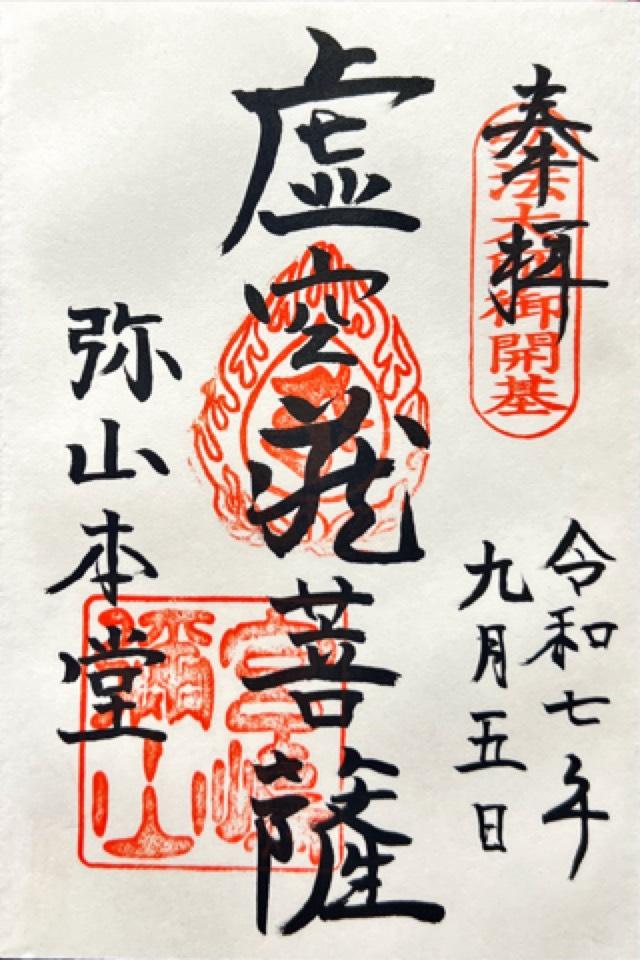 奉拝
弘法大師御開基
令和七年
九月五日
虚空蔵菩薩
弥山本堂
宮島
彌山